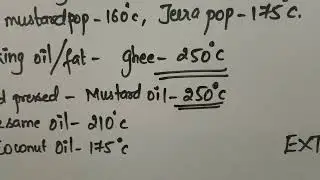 mustard pop - 160°c, Jeera pop - 175°c.
king oil/fat - ghee - 250°c
d pressed - Mustard oil - 250°c
esame oil - 210°c
Coconut oil - 175°c
EXT